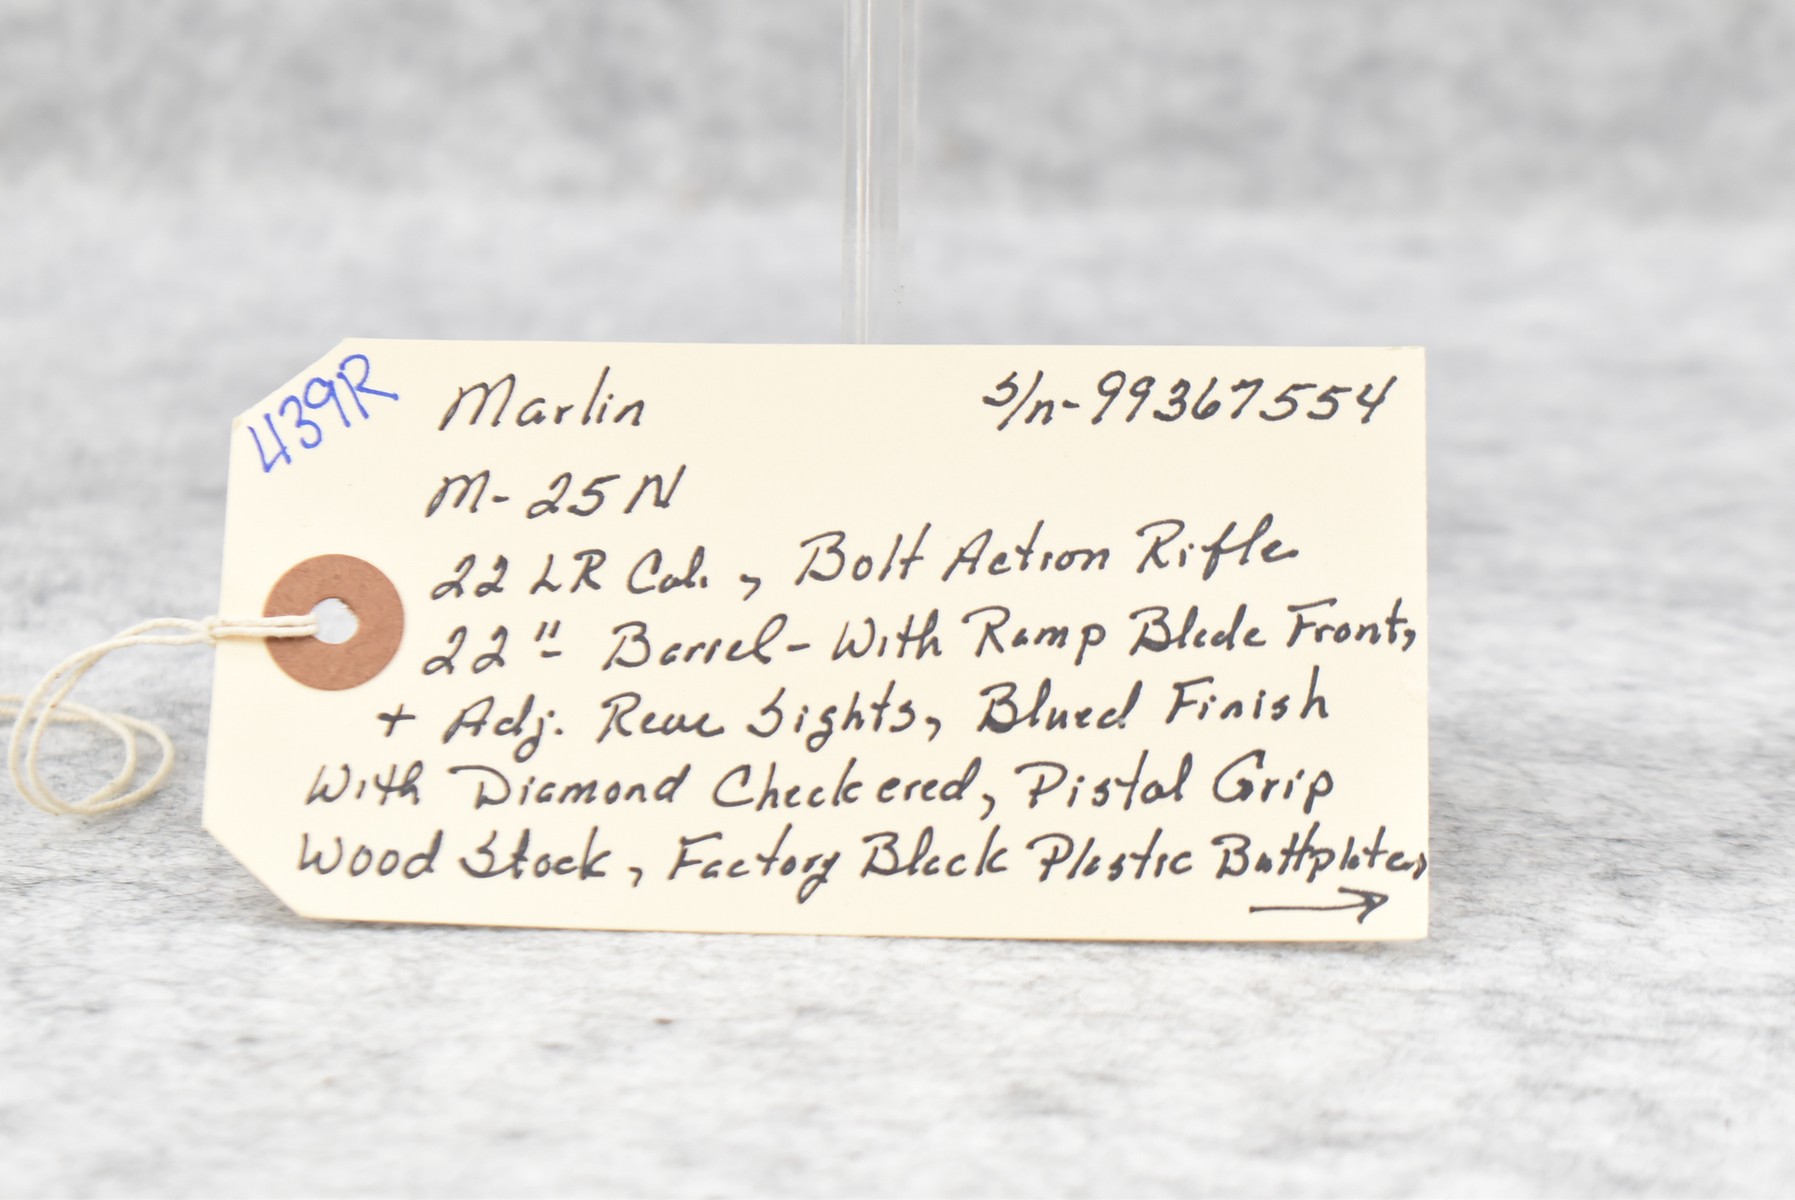 439R
Marlin S/n-99367554
M-25N
22 LR Cal., Bolt Action Rifle
22" Barrel-With Ramp Blade Front,
+ Adj. Rear Sights, Blued Finish
With Diamond Checkered, Pistol Grip
Wood Stock, Factory Black Plastic Buttplate,
→